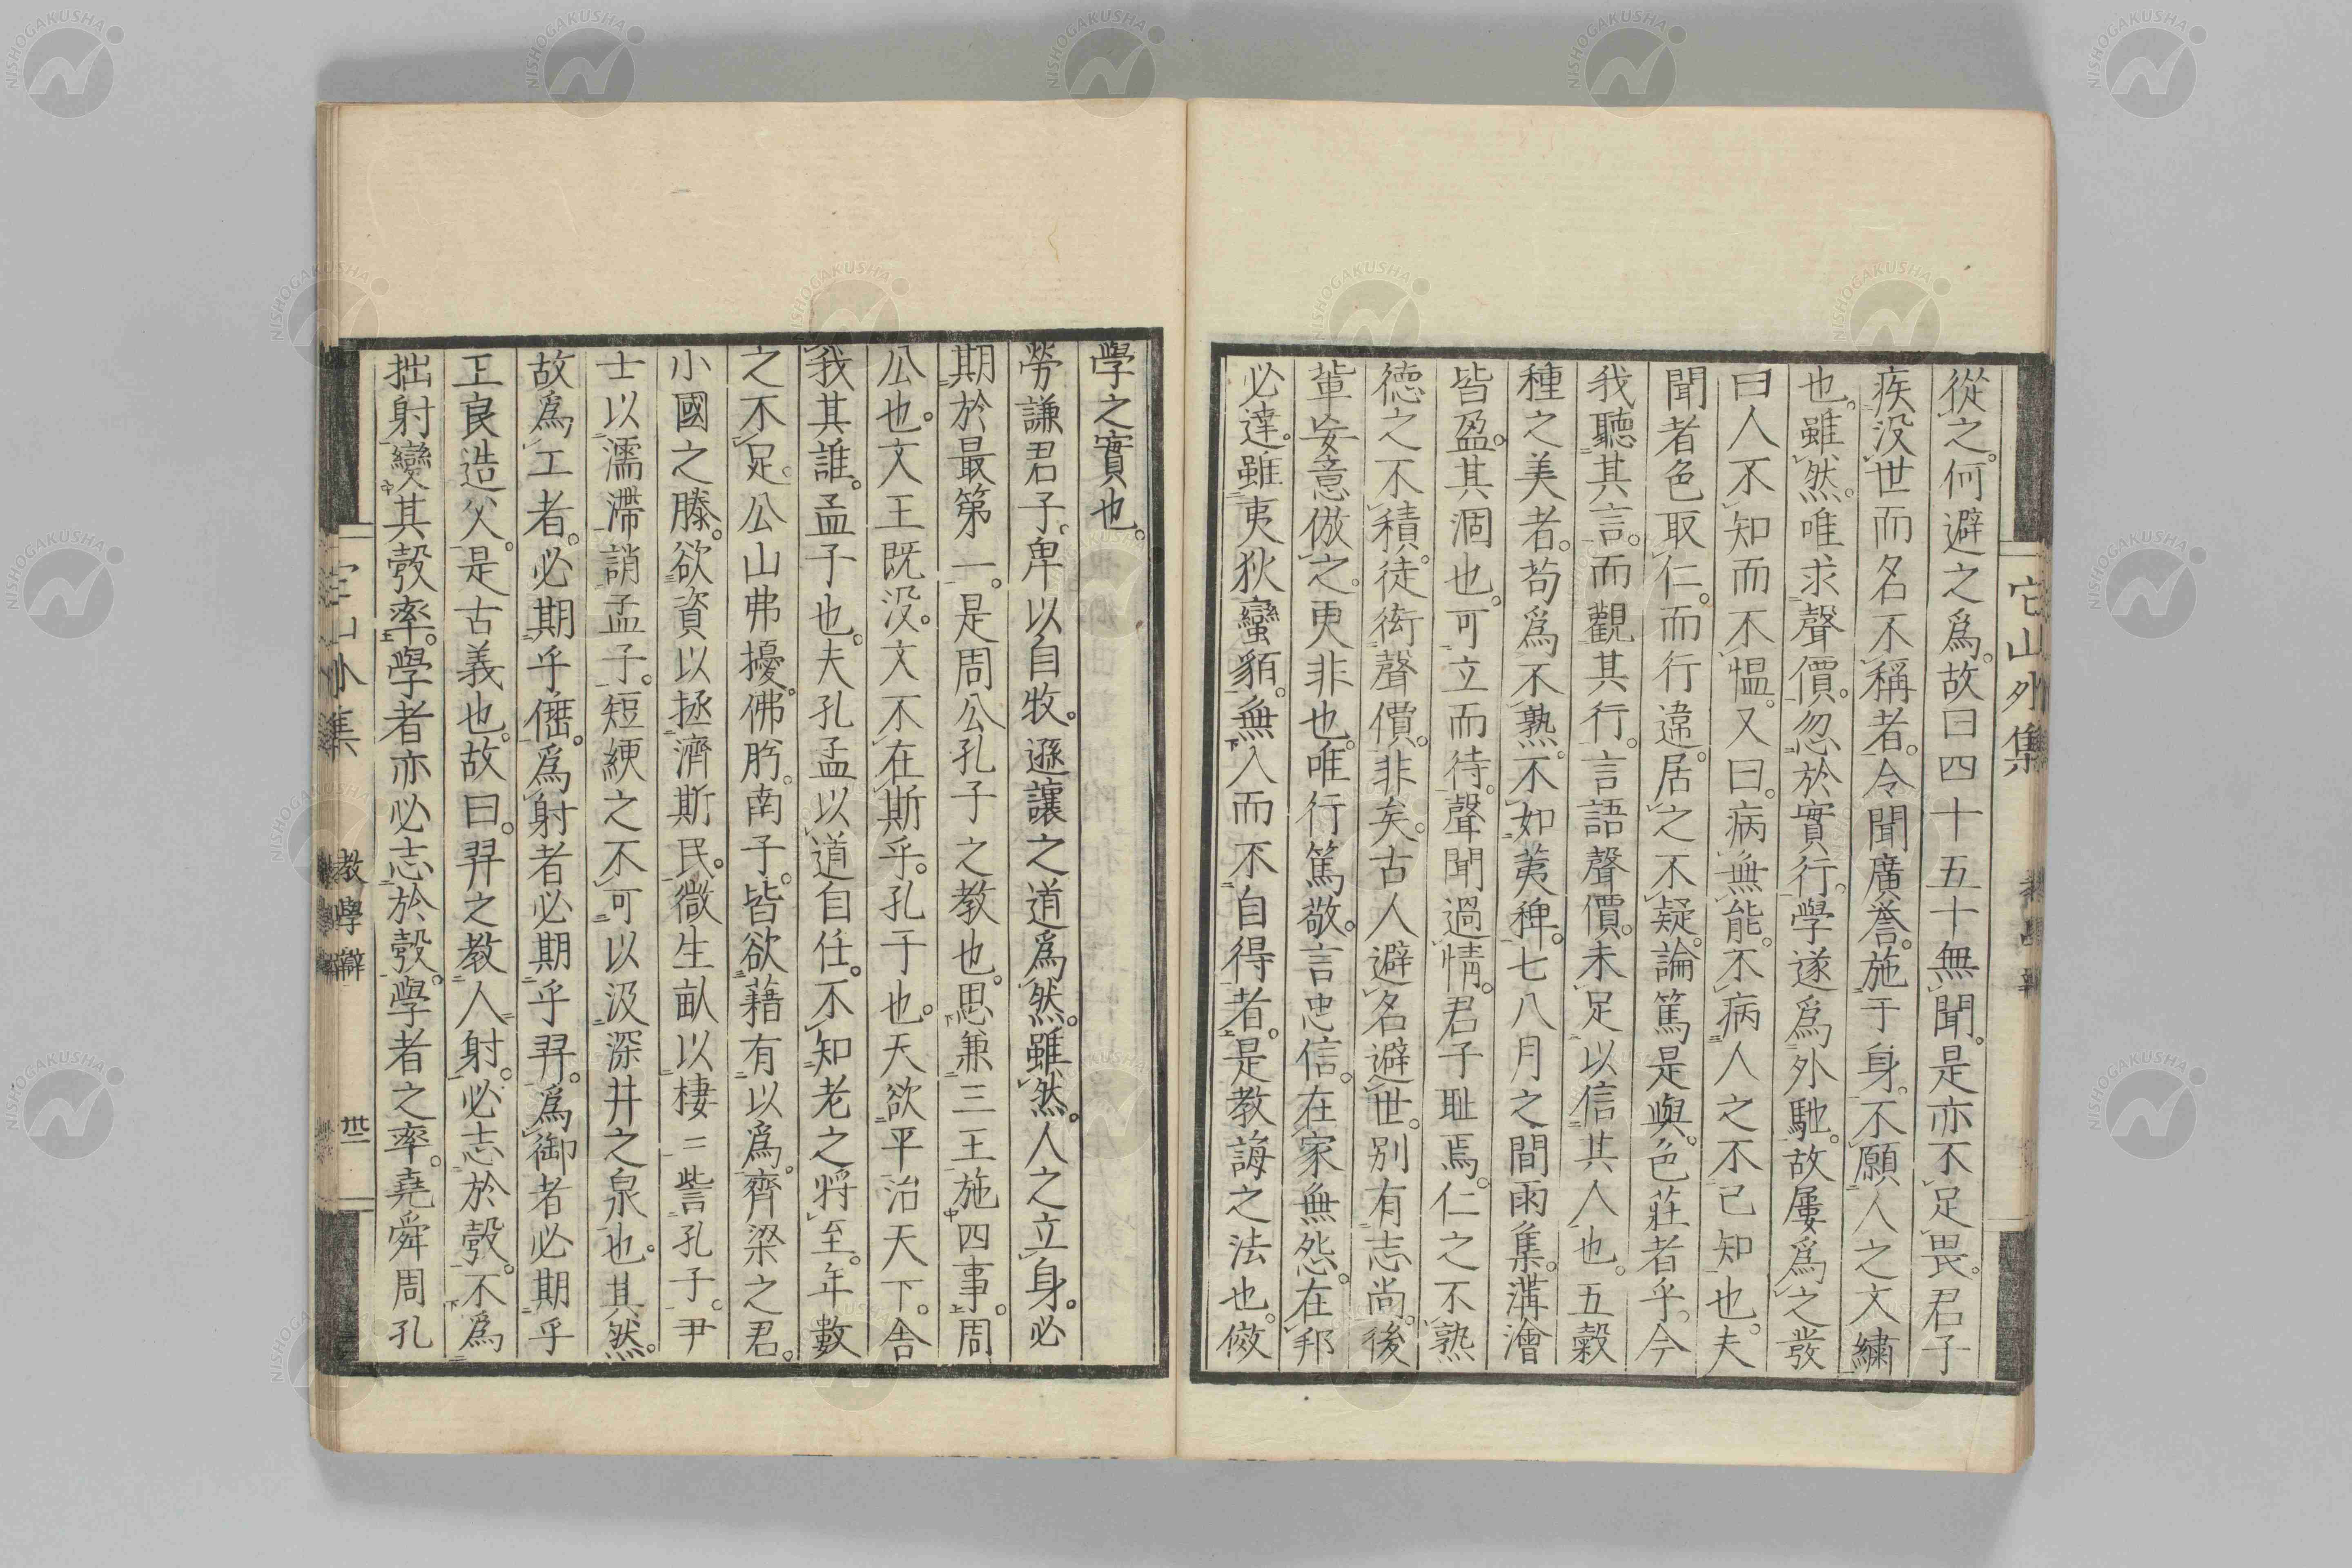 它山外集
從之。何避之爲。故曰四十五十無聞。是亦不足畏。君子
疾没世而名不稱者。令聞廣誉。施于身。不願人之文繡
也。雖然。唯求聲價。忽於實行。學遂爲外馳。故屢爲之發
曰人不知而不愠。又曰。病無能。不病人之不己知也。夫
聞者色取仁。而行違。居之不疑。論篤是與。色莊者乎。今
我聽其言。而觀其行。言語聲價。未足以信其人也。五穀
種之美者。苟爲不熟。不如荑稗。七八月之間雨集。溝澮
皆盈。其涸也。可立而待。聲聞過情。君子耻焉。仁之不熟
德之不積。徒衒聲價。非矣。古人避名避世。別有志尚。後
輩妄意倣之。更非也。唯行篤敬。言忠信。在家無怨。在邦
必達。雖夷狄蠻貊。無入而不自得者。是教誨之法也。傚
學之實也。
勞謙君子。卑以自牧。遜讓之道爲然。雖然。人之立身。必
期於最第一。是周公孔子之教也。思兼三王施四事。周
公也。文王既没。文不在斯乎。孔子也。天欲平治天下。舍
我其誰。孟子也。夫孔孟以道自任。不知老之將至。年數
之不足。公山弗擾。佛肹。南子。皆欲藉有以爲。齊梁之君。
小國之滕。欲資以拯濟斯民。微生畝以棲〻訾孔子。尹
士以濡滯誚孟子。短綆之不可以汲深井之泉也。其然。
故爲工者。必期乎倕。爲射者必期乎羿。爲御者必期乎
王良造父。是古義也。故曰。羿之教人射。必志於彀。不爲
拙射變其彀率。學者亦必志於彀。學者之率。堯舜周孔
教學辯
卅二
NISHOGAKUSHA